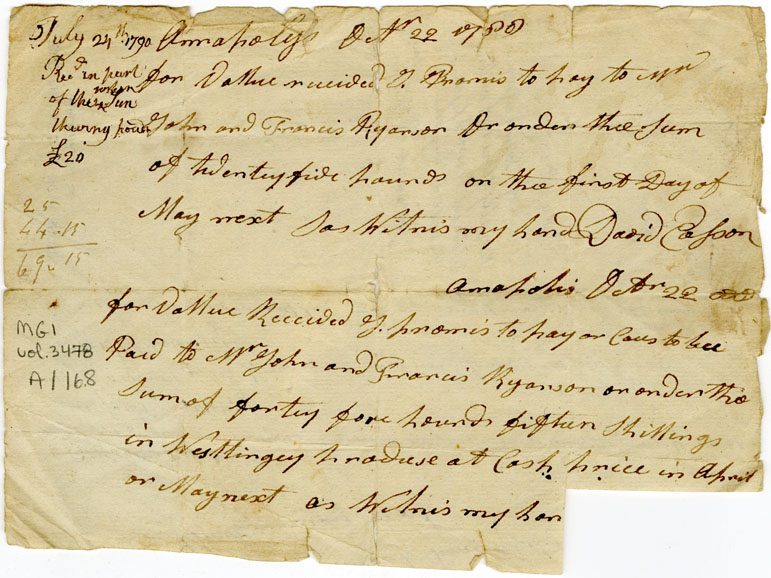 July 24th 1790
Recd in part
of the within Sum
twenty pounds
£20
25
44.15
69.15
MG1
vol. 3478
A/168
Annapolys Octr 22 1788
for Vallue received I Promis to pay to Mr
John and Francis Ryanson Or order the Sum
of twenty five pounds on the first Day of
May next as Witnis my hand David Casson
Annapolis Octr 22
for Vallue Received I promis to pay or Caus to bee
Paid to Mr John and Francis Ryanson or order the
Sum of fortey fore pounds fifteen Shillings
in Westingey produse at Cash price in April
or May next as Witnis my han